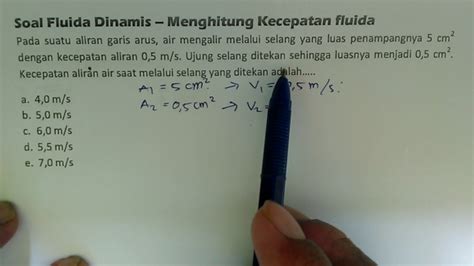 Soal Fluida Dinamis – Menghitung Kecepatan fluida
Pada suatu aliran garis arus, air mengalir melalui selang yang luas penampangnya 5 cm²
dengan kecepatan aliran 0,5 m/s. Ujung selang ditekan sehingga luasnya menjadi 0,5 cm².
Kecepatan aliran air saat melalui selang yang ditekan adalah.....
A₁ = 5 cm² → V₁ = 0,5 m/s.
A₂ = 0,5 cm² → V₂ =
a. 4,0 m/s
b. 5,0 m/s
c. 6,0 m/s
d. 5,5 m/s
e. 7,0 m/s